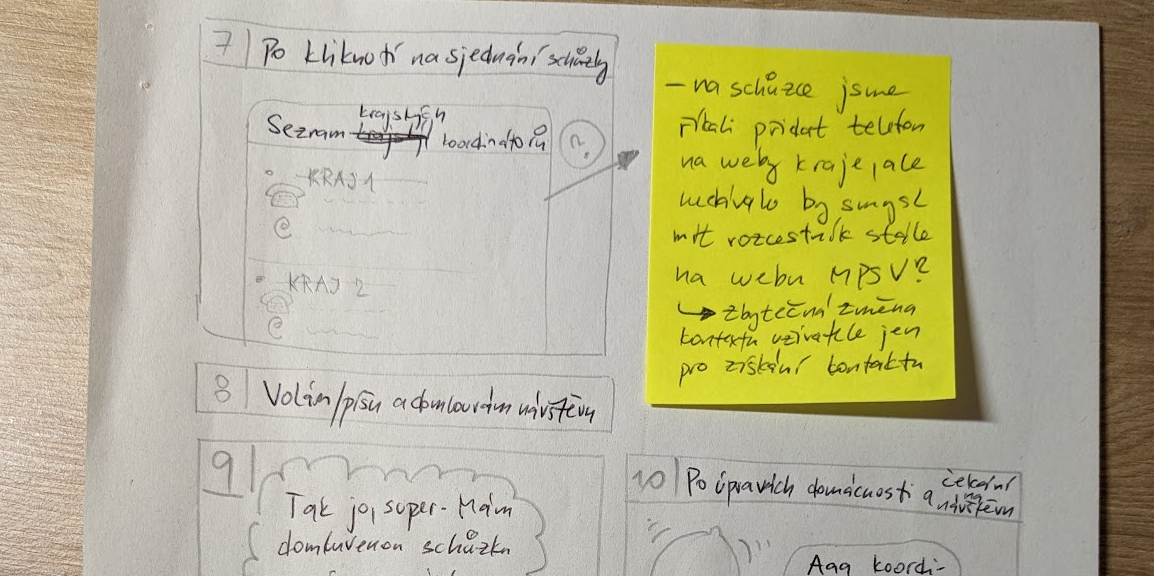 7 Po kliknutí na sjednání schůzky
krajských
Seznam koordinátorů
?
KRAJ 1
@
KRAJ 2
@
– na schůzce jsme
říkali přidat telefon
na weby kraje, ale
nedávalo by smysl
mít rozcestník stále
na webu MPSV?
↳ zbytečná změna
kontextu uživatele jen
pro získání kontaktu
8 Volám/píšu a domlouvám návštěvu
9
Tak jo, super. Mám
domluvenou schůzku
10 Po úpravách domácnosti a čekání
na
návštěvu
Aaa koordi-